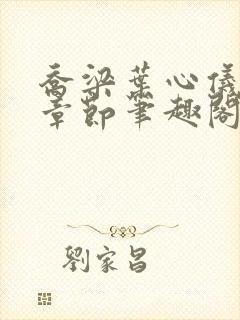 喬梁葉心儀
章節筆趣閣
劉家昌